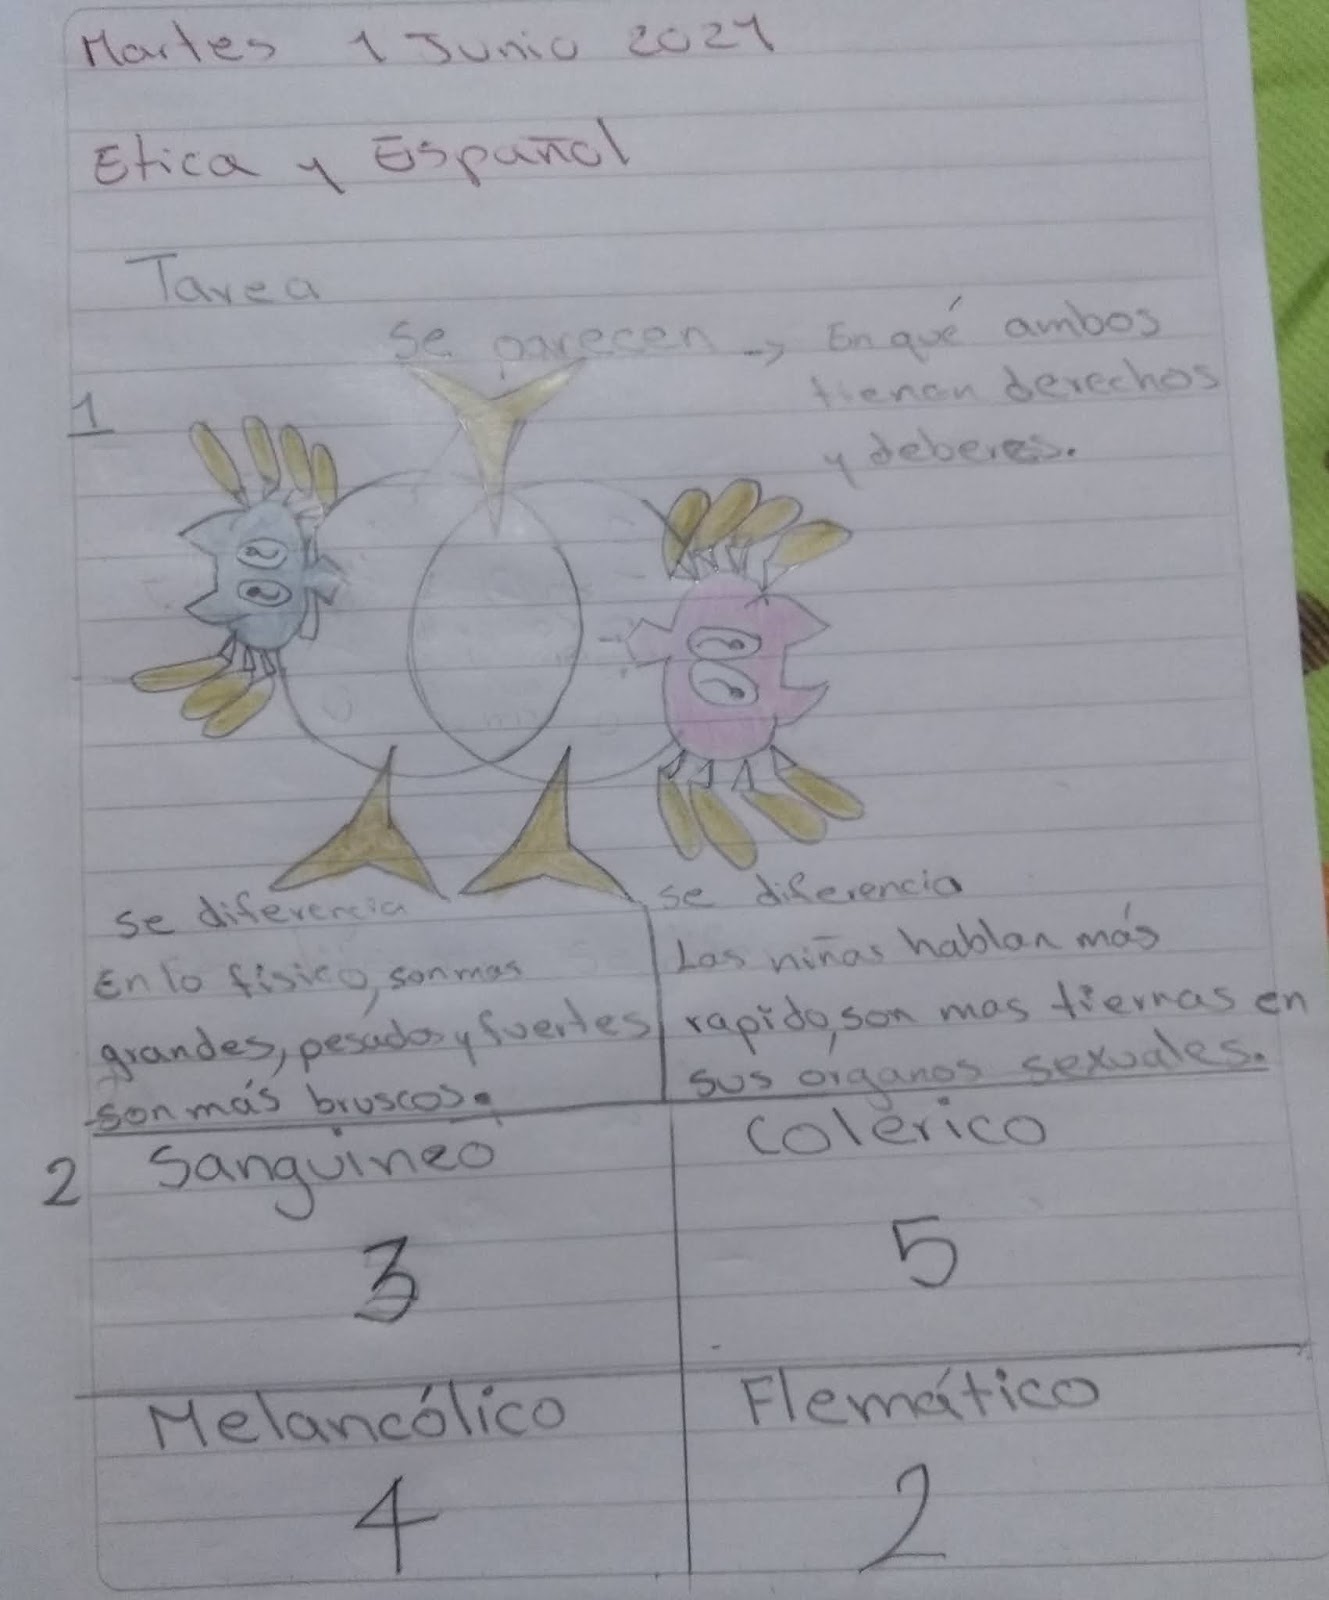 Martes 1 Junio 2021
Etica y Español
Tarea
1
se parecen -> En qué ambos
tienen derechos
y deberes.
se diferencia
En lo fisico, son mas
grandes, pesados y fuertes
son más bruscos.
se diferencia
Las niñas hablan más
rapido, son mas tiernas en
sus órganos sexuales.
2
Sanguineo
3
Colérico
5
Melancólico
4
Flemático
2